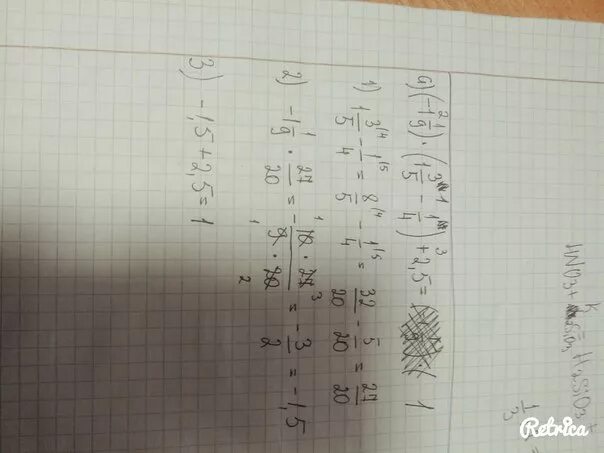 а) (-1 1/9) · (1 3/5 - 1/4) + 2,5 = 1
1) 1 3/5 - 1/4 = 8/5 - 1/4 = 32/20 - 5/20 = 27/20
2) -1 1/9 · 27/20 = - 10 · 27 / 9 · 20 = - 3/2 = -1,5
3) -1,5 + 2,5 = 1
1/3
Retrica